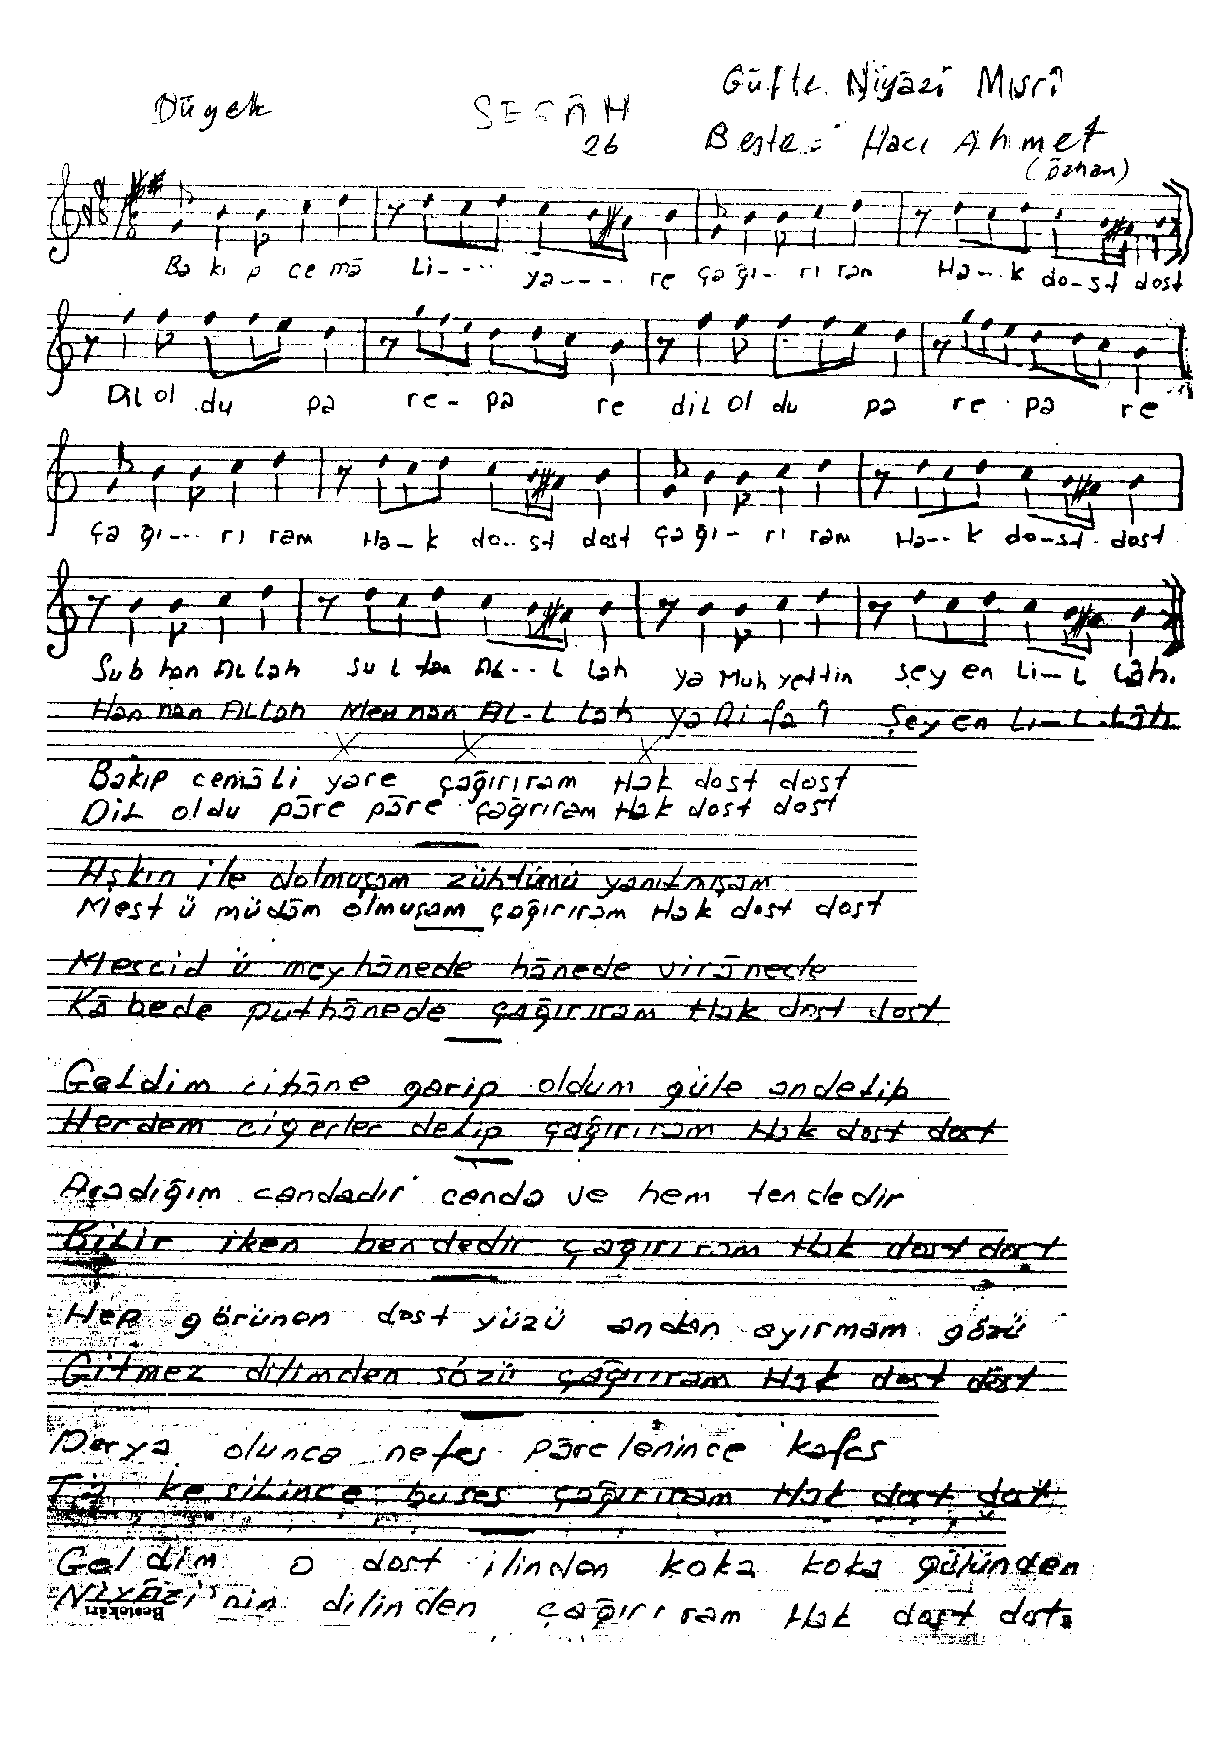 Güfte. Niyâzi Mısrî
Düyek SEGÂH
26 Beste: Hacı Ahmet
(Özhan)
Ba kı p ce mâ Li---- ya---- re ça ğı- rı ram Ha--k do-st dost
Dil ol du pa re- pa re dil ol du pa re pa re
Ça ğı--- rı ram Ha-k do--st dost ça ğı- rı ram Ha--k do-st dost
Sub han ALLah su l tan AL--L Lah ya Muh yettin şey en Li--L Lâh.
Han nan ALLah Men nan AL-L Lah ya Ri fa î Şey en Li--L Lâh
Bakıp cemâLi yare çağırıram Hak dost dost
DiL oldu pâre pâre çağırıram Hak dost dost
Aşkın ile dolmuşam zühtümü yanıtmışam
Mest ü müdâm olmuşam çağırıram Hak dost dost
Mescid ü meyhânede hânede virânede
Kâbede puthânede çağırıram Hak dost dost
GeLdim cihâne garip oldum güle andelip
Herdem ciğerler delip çağırıram Hak dost dost
Aradığım candadır canda ve hem tendedir
BiLir iken bendedir çağırıram Hak dost dost
Hep görünen dost yüzü andan ayırmam gözü
Gitmez dilimden sözü çağırıram Hak dost dost
Derya olunca nefes pârelenince kafes
Tâ kesiLince bu ses çağırıram Hak dost dost
Geldim o dost ilinden koka koka gülünden
Niyâzi'nin dilinden çağırıram Hak dost dost
Bestekârı